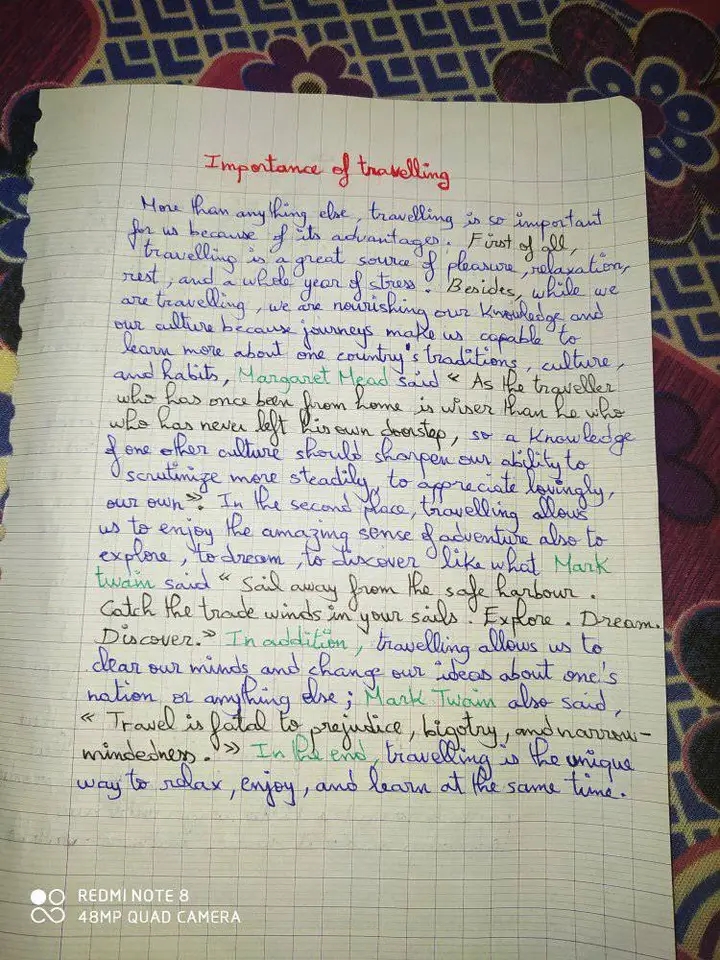 Importance of travelling
More than anything else, travelling is so important
for us because of its advantages. First of all,
travelling is a great source of pleasure, relaxation,
rest, and a whole year of stress. Besides, while we
are travelling, we are nourishing our knowledge and
our culture because journeys make us capable to
learn more about one country's traditions, culture,
and habits, Margaret Mead said « As the traveller
who has once been from home is wiser than he who
who has never left his own doorstep, so a knowledge
of one other culture should sharpen our ability to
scrutinize more steadily, to appreciate lovingly,
our own ». In the second place, travelling allows
us to enjoy the amazing sense of adventure also to
explore, to dream, to discover like what Mark
twain said « Sail away from the safe harbour.
Catch the trade winds in your sails. Explore. Dream.
Discover.» In addition, travelling allows us to
clear our minds and change our ideas about one's
nation or anything else; Mark Twain also said,
« Travel is fatal to prejudice, bigotry, and narrow-
mindedness. » In the end, travelling is the unique
way to relax, enjoy, and learn at the same time.
REDMI NOTE 8
48MP QUAD CAMERA